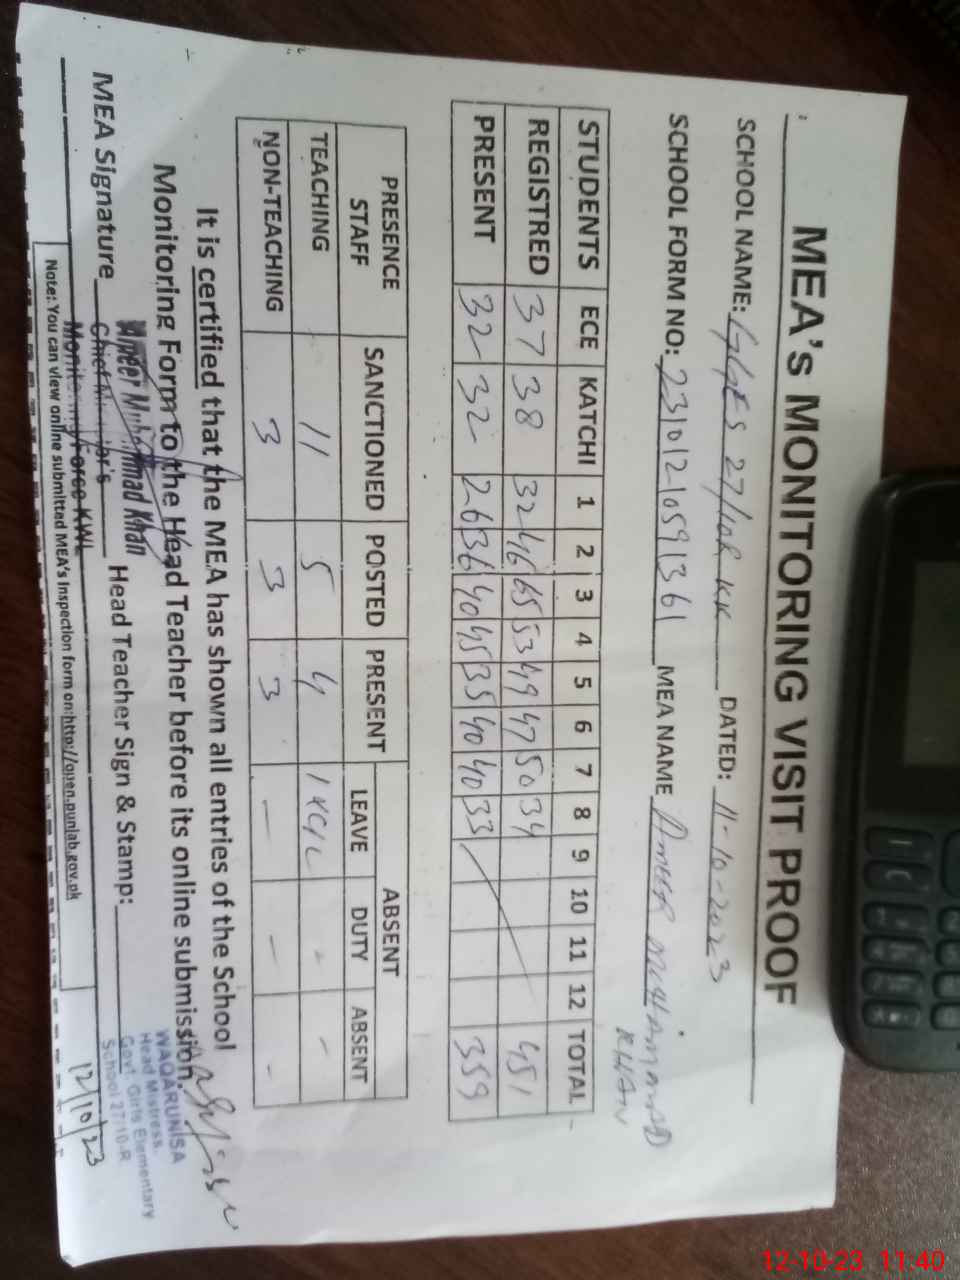 MEA's MONITORING VISIT PROOF
SCHOOL NAME: GGES 27/10R KW DATED: 11-10-2023
SCHOOL FORM NO: 23101210591361 MEA NAME AMEER MUHAMMAD
KHAN
STUDENTS ECE KATCHI 1 2 3 4 5 6 7 8 9 10 11 12 TOTAL
REGISTRED 37 38 32 46 65 53 49 47 50 34 451
PRESENT 32 32 26 36 40 45 35 40 40 33 359
PRESENCE STAFF SANCTIONED POSTED PRESENT ABSENT
LEAVE DUTY ABSENT
TEACHING 11 5 4 1 - -
NON-TEACHING 3 3 3 - - -
It is certified that the MEA has shown all entries of the School
Monitoring Form to the Head Teacher before its online submission.
MEA Signature Head Teacher Sign & Stamp:
Ameer Muhammad Khan
Monitoring Force KWL
WAQARUNISA
Head Mistress.
Govt. Girls Elementary
School 27/10-R
12/10/23
Note: You can view online submitted MEA's Inspection form on:http://open.punjab.gov.pk
12-10-23 11:40